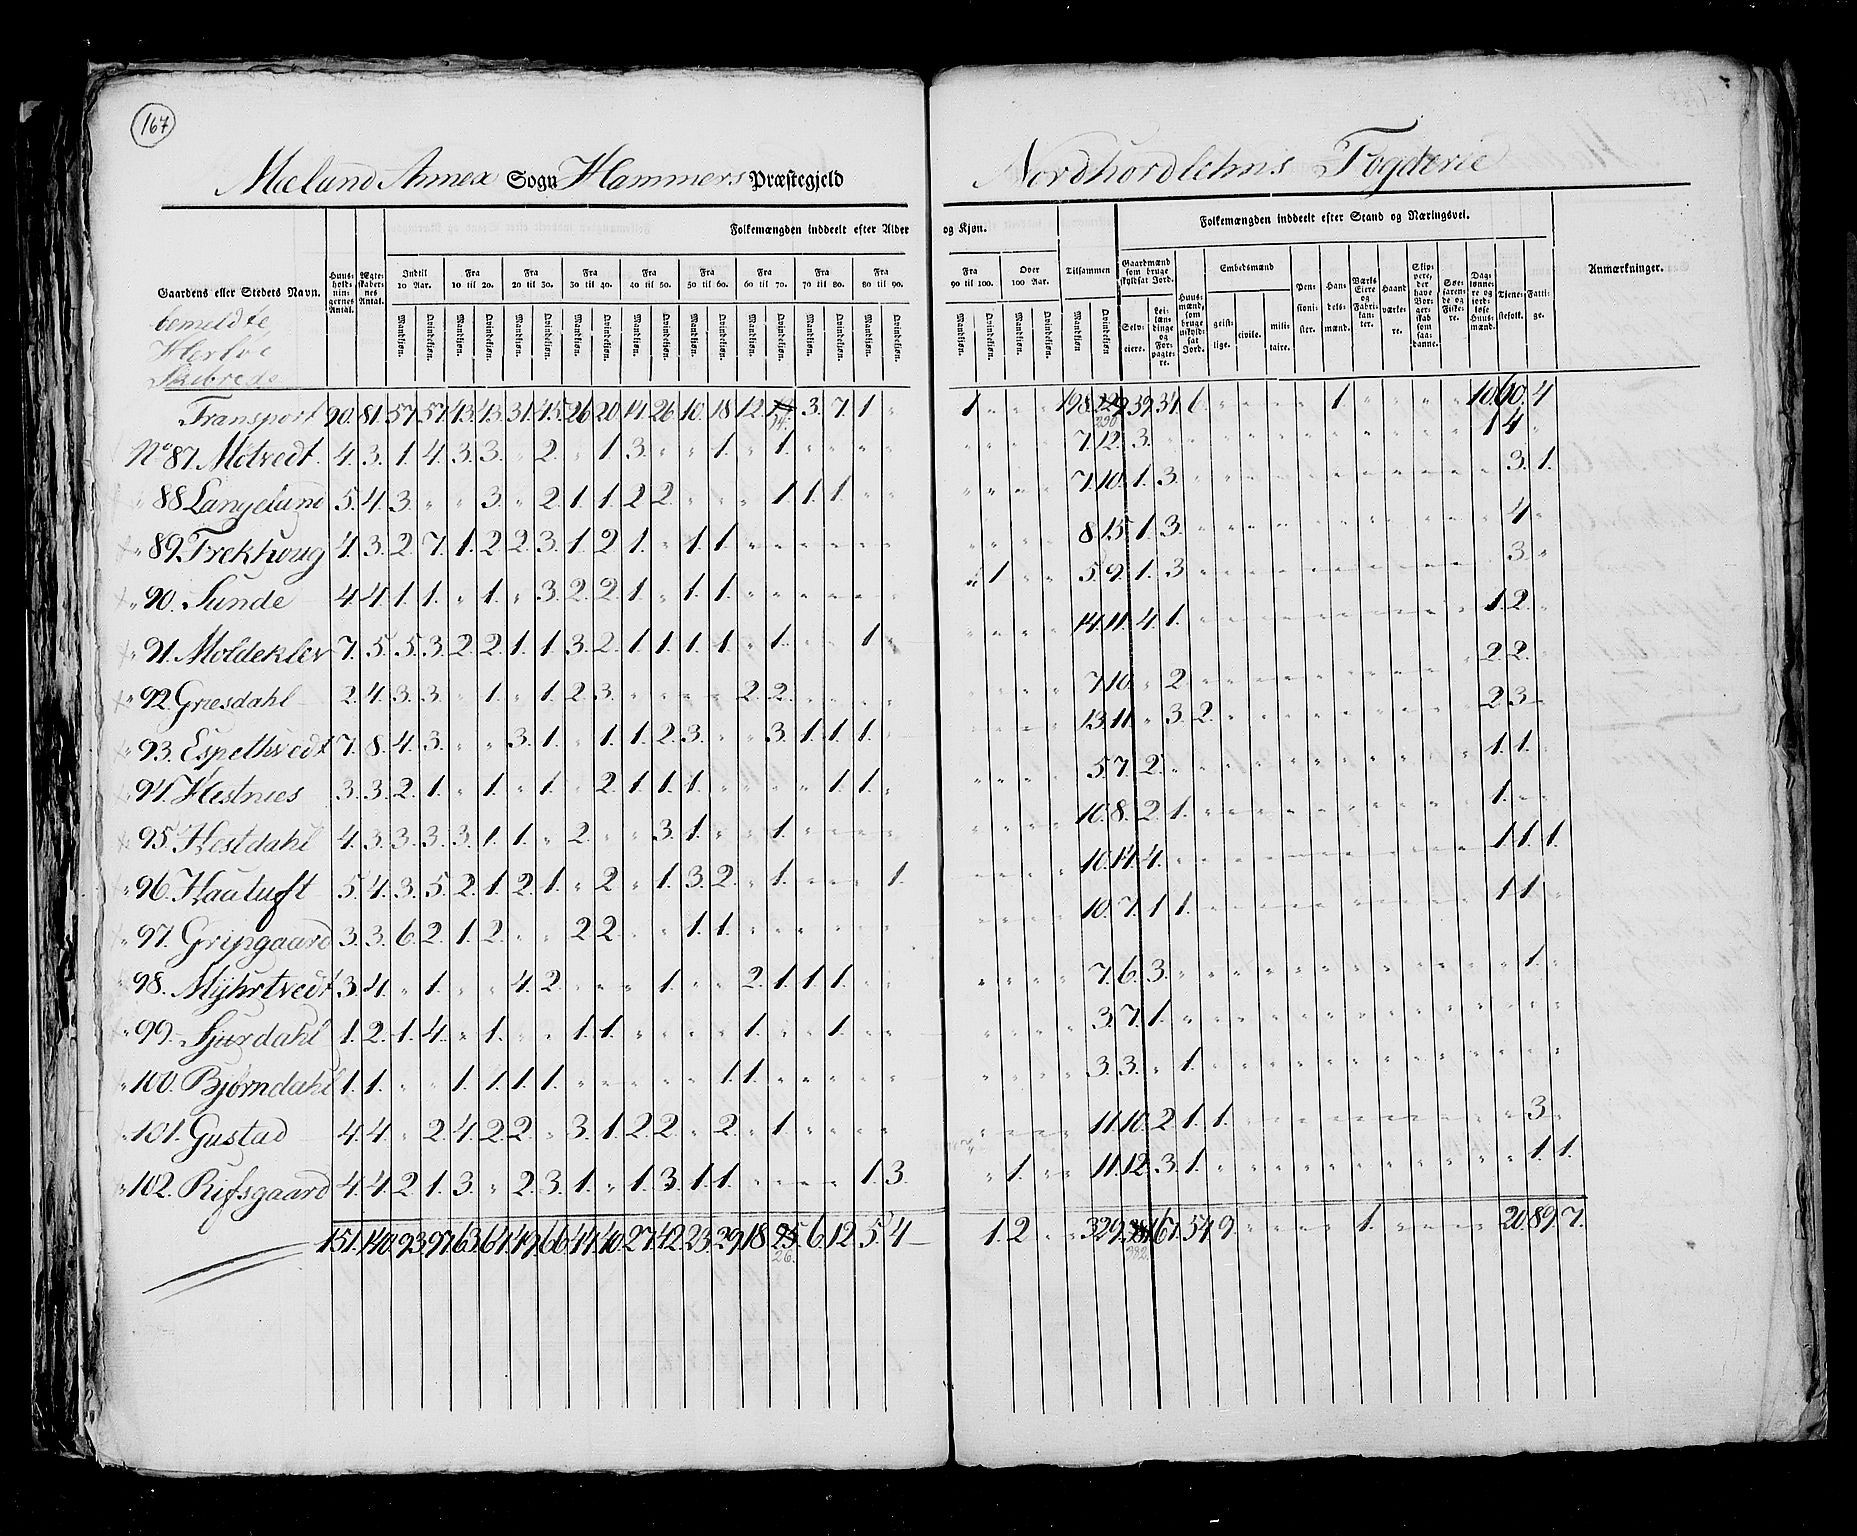 167
Mæland Annex Sogn Hammers Præstegjeld
Nordhordlehns Fogderie
Gaardens eller Stedets Navn.
Huusholdningernes Antal.
Ægteskabernes Antal.
Folkemængden inddeelt efter Alder og Kjøn.
Indtil 10 Aar. Fra 10 til 20. Fra 20 til 30. Fra 30 til 40. Fra 40 til 50. Fra 50 til 60. Fra 60 til 70. Fra 70 til 80. Fra 80 til 90. Fra 90 til 100. Over 100 Aar. Tilsammen
Mandkjøn. Qvindekjøn.
Folkemængden inddeelt efter Stand og Næringsvei.
Gaardmænd som bruge skyldsat Jord.
Selveiere. Leilændinge og Forpagtere.
Huusmænd, som bruge uskyldsat Jord.
Embedsmænd
geistlige. civile. militaire.
Pensionister. Handelsmænd. Værks Eiere og Fabrikanter. Haandværkere. Skippere, der have Borgerskab som saadanne. Søefarende og Fiskere. Daglønnere og jordløse Huusmænd. Tjenestefolk. Fattige.
Anmærkninger.
bemeldte
Herlöe
Skibrede
Transport 90. 81. 57. 57. 43. 43. 31. 45. 26 20. 14. 26. 10. 18. 12. 14. 3. 7. 1. " 1. " " " 198. 229 230 39. 34. 6. " " " " 1. " " " " 10. 60. 4
No 87. Motvedt. 4. 3. 1. 4. 3. 3. " 2. " 1. 3. " " 1. " 1. " " " " " " " " 7. 12. 3. " " " " " " " " " " " 1 4. "
" 88 Langelund 5. 4. 3. " " 3. " 2. 1. 1. 2 2. " " " 1. 1. 1. " " " " " " 7. 10. 1. 3. " " " " " " " " " " " 3. 1.
" 89. Trekhoug 4. 3. 2. 7. 1. 2. 2. 3. 1. 2. 1. " 1. 1. " " " " " " " " " " 8. 15. 1. 3. " " " " " " " " " " " 4. "
" 90. Sunde 4. 4. 1. 1. " 1. " 3. 2. 2. 1. " 1. 1. " " " " " " " 1 " " 5. 9. 1. 3 " " " " " " " " " " " 3. "
" 91. Moldeklev 7. 5. 5. 3. 2. 2. 1. 1. 3. 2. 1. 1. 1. 1. " 1. " " 1. " " " " " 14. 11. 4. 1. " " " " " " " " " " 1. 2. "
" 92. Græsdahl 2. 4. 3. 3. " 1. " 1. 2. 3. " " " " 2. 2. " " " " " " " " 7. 10. " 2 " " " " " " " " " " 2. 2. "
" 93. Espethvedt 7. 8. 4. 3. " " 3. 1. " 1. 1. 2. 3. " " 3. 1. 1. 1. " " " " " 13. 11. " 3. 2. " " " " " " " " " 2. 3 "
" 94. Hestnæs 3. 3. 2. 1. " 1. " 1. " 2. 1. 1. 1. " " " " 1. 1. " " " " " 5. 7. 2. " " " " " " " " " " " 1. 1. "
" 95. Hestdahl 4. 3. 3. 3. 3. 1. 1. " 2. " " 3. 1. " " 1. " " " " " " " " 10. 8. 2. 1. " " " " " " " " " " 1. " "
" 96. Haaluft 5. 4. 3. 5. 2. 1. 2. 1. " 2. " 1. 3. 2. " 1. " " " 1. " " " " 10. 14. 4. " " " " " " " " " " " 1. 1. 1.
" 97. Gripgaard 3. 3. 6. 2. 1. 2. " " 2 2. " " 1. 1. " " " " " " " " " " 10. 7. 1. 1. " " " " " " " " " " 1. 1. "
" 98. Myhrtvedt 3. 4. " 1. " " 4. 2. " " " 1. " " 2. 1. 1. 1. " " " " " " 7. 6. 3. " " " " " " " " " " " " 1. "
" 99. Sjurdahl 1. 2. 1. 4. " 1. " " 1. 1. " " " " 1. " " 1. " " " " " " 3. 7. 1. " " " " " " " " " " " " " "
" 100. Bjørndahl 1. 1. " " 1. 1. 1. 1. " " " " " 1. 1. " " " " " " " " " 3. 3. " 1. " " " " " " " " " " " " "
" 101. Gustad 4. 4. " 2. 4. 2. 2. " 3. 1. 2. 2. " 2. " 1. " " " " " " " " 11. 10. 2. 1. 1. " " " " " " " " " " 3. "
" 102. Rifsgaard 4. 4. 2. 1. 3. " 2. 3. 1. " 1. 3. 1. 1. " " " " 1. 3. " 1. " " 11. 12. 3. 1. " " " " " " " " " " " 1. 1.
151. 140. 93. 97. 63. 64. 49. 66. 44. 40. 27. 42. 23. 29. 18. 25. 26. 6. 12. 5. 4 1. 2. " " 329. 381 382. 67. 54. 9. " " " " 1. " " " " 20. 89. 7.